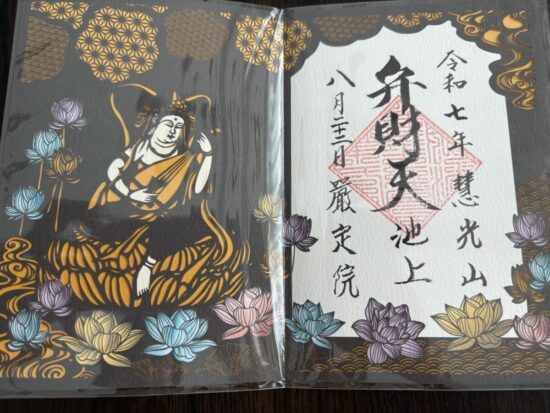 令和七年 慧光山
弁財天 池上
八月二十二日 厳定院